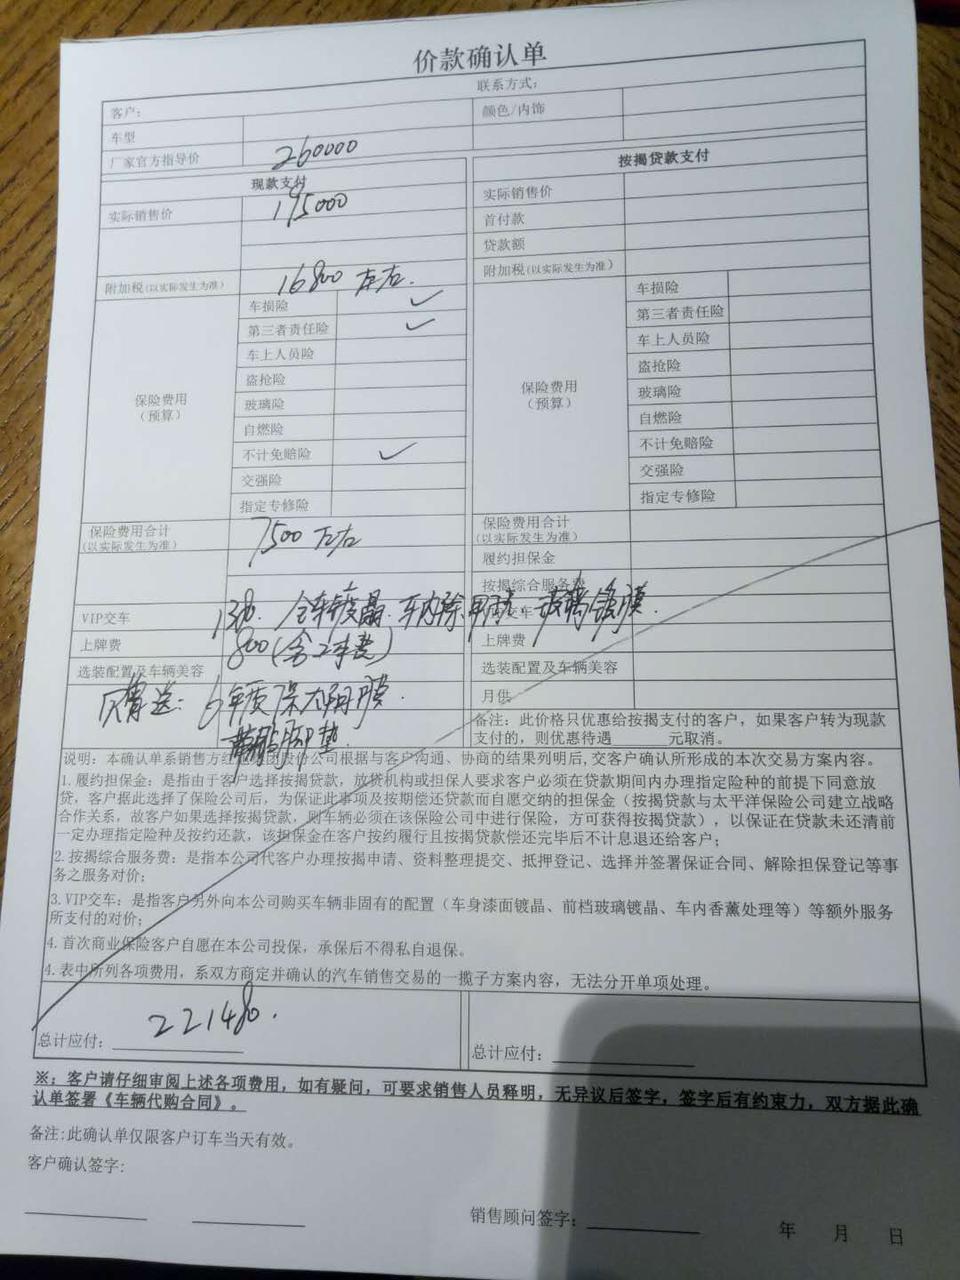 价款确认单
客户: 联系方式:
车型 颜色/内饰
厂家官方指导价 260000
现款支付 按揭贷款支付
实际销售价 195000 实际销售价
首付款
贷款额
附加税(以实际发生为准) 16800 左右. 附加税(以实际发生为准)
保险费用(预算) 车损险 ✓ 保险费用(预算) 车损险
第三者责任险 ✓ 第三者责任险
车上人员险 车上人员险
盗抢险 盗抢险
玻璃险 玻璃险
自燃险 自燃险
不计免赔险 ✓ 不计免赔险
交强险 交强险
指定专修险 指定专修险
保险费用合计(以实际发生为准) 7500 左右 保险费用合计(以实际发生为准)
履约担保金
按揭综合服务费
VIP交车 1380. 全车镀晶. 车内除甲醛. 玻璃镀膜.
上牌费 800(含工本费) 上牌费
选装配置及车辆美容 选装配置及车辆美容
赠送: 6年质保太阳膜. 月供
脚垫. 备注: 此价格只优惠给按揭支付的客户, 如果客户转为现款
支付的, 则优惠待遇______元取消。
说明: 本确认单系销售方股份公司根据与客户沟通、协商的结果列明后, 交客户确认所形成的本次交易方案内容。
1. 履约担保金: 是指由于客户选择按揭贷款, 放贷机构或担保人要求客户必须在贷款期间内办理指定险种的前提下同意放
贷, 客户据此选择了保险公司后, 为保证此事项及按期偿还贷款而自愿交纳的担保金 (按揭贷款与太平洋保险公司建立战略
合作关系, 故客户如果选择按揭贷款, 则车辆必须在该保险公司中进行保险, 方可获得按揭贷款), 以保证在贷款未还清前
一定办理指定险种及按约还款, 该担保金在客户按约履行且按揭贷款偿还完毕后不计息退还给客户;
2. 按揭综合服务费: 是指本公司代客户办理按揭申请、资料整理提交、抵押登记、选择并签署保证合同、解除担保登记等事
务之服务对价;
3. VIP交车: 是指客户另外向本公司购买车辆非固有的配置 (车身漆面镀晶、前档玻璃镀晶、车内香薰处理等) 等额外服务
所支付的对价;
4. 首次商业保险客户自愿在本公司投保, 承保后不得私自退保。
4. 表中所列各项费用, 系双方商定并确认的汽车销售交易的一揽子方案内容, 无法分开单项处理。
221480.
总计应付: 总计应付:
※: 客户请仔细审阅上述各项费用, 如有疑问, 可要求销售人员释明, 无异议后签字, 签字后有约束力, 双方据此确
认单签署《车辆代购合同》。
备注:此确认单仅限客户订车当天有效。
客户确认签字:
销售顾问签字: 年 月 日